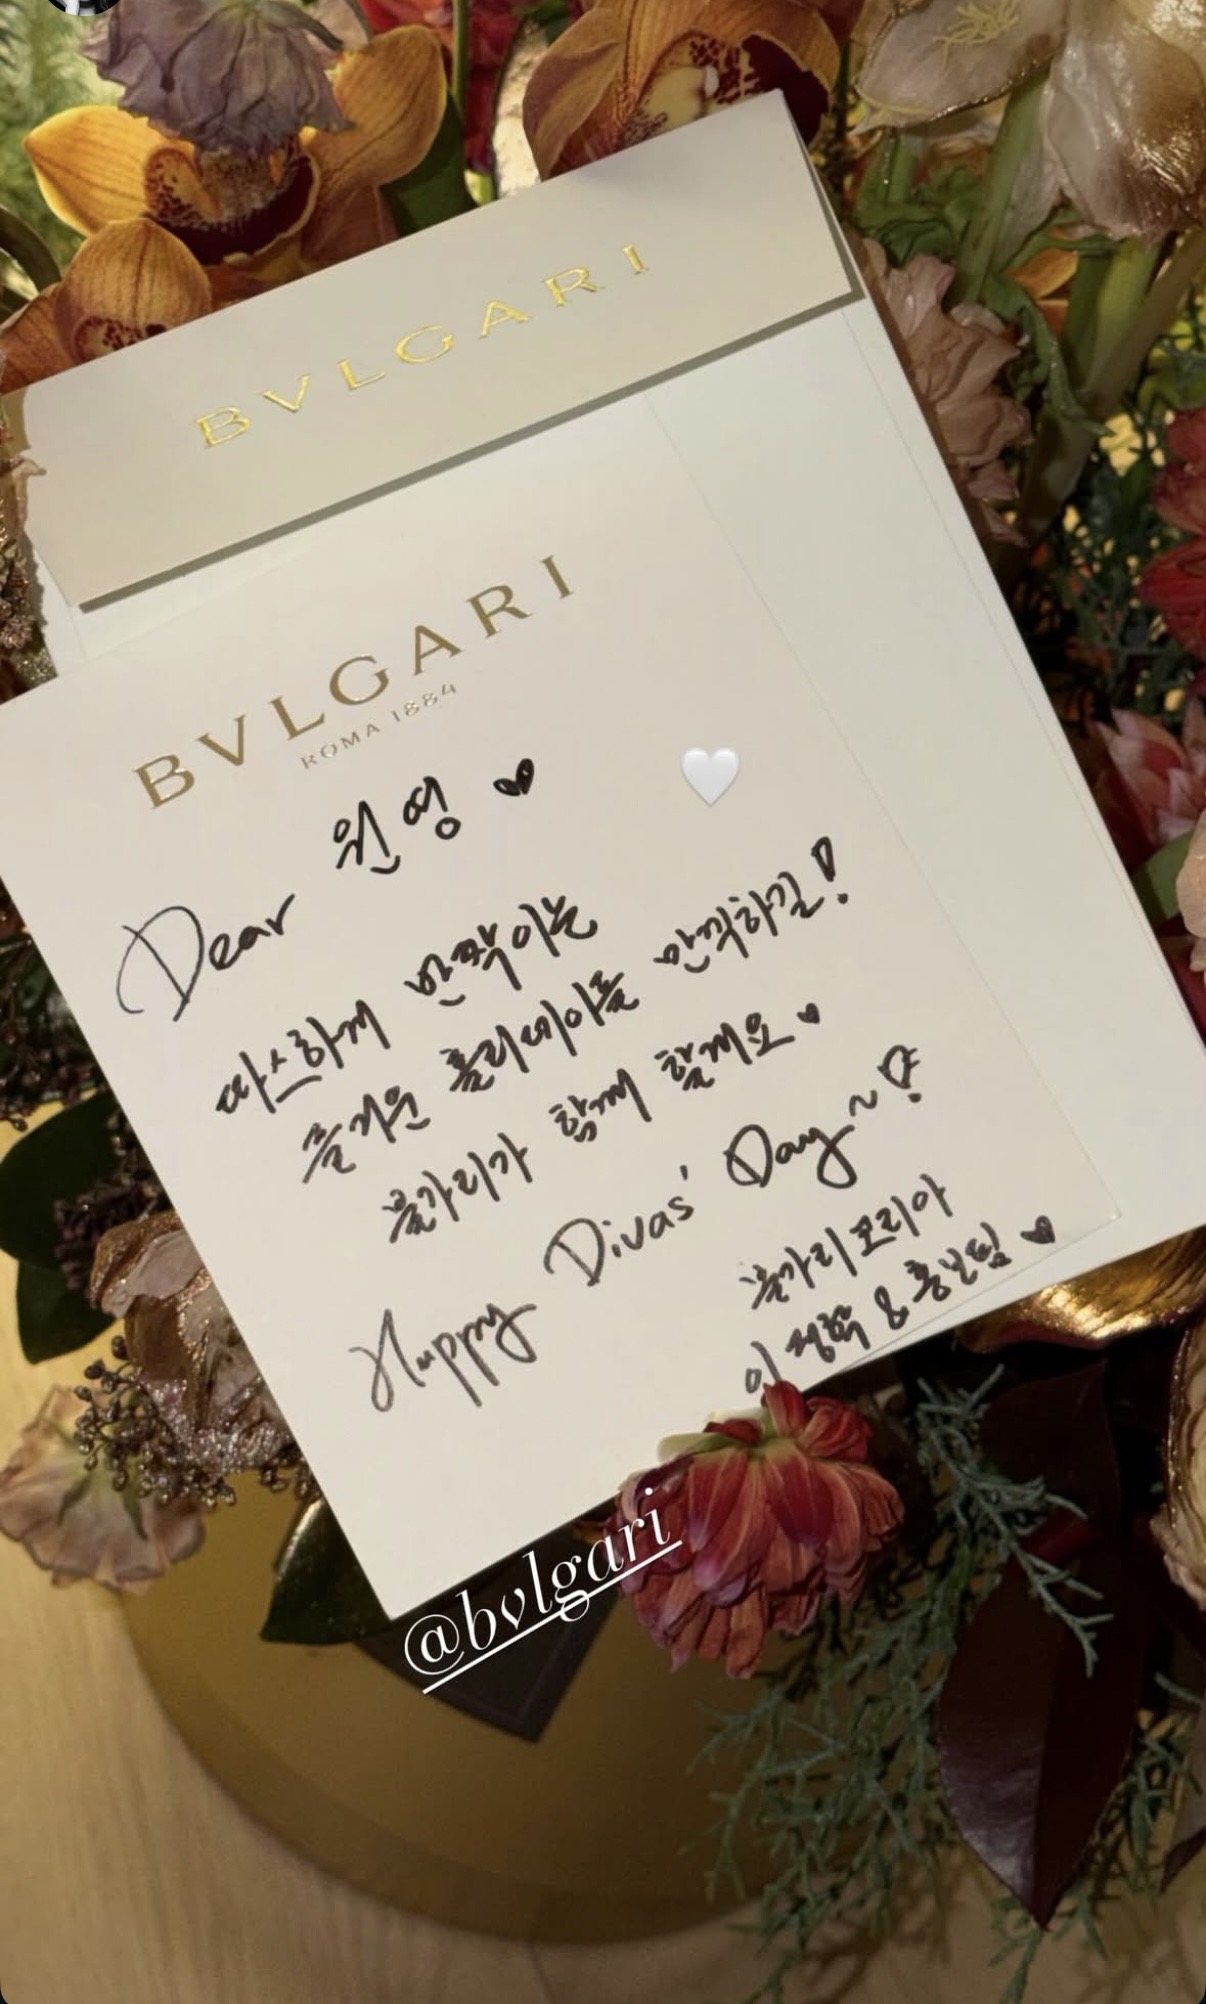 BVLGARI
BVLGARI
ROMA 1884
Dear 원영 ♥
따스하게 반짝이는
즐거운 홀리데이를 만끽하길!
불가리가 함께 할게요 ♥
Happy Divas' Day~!
불가리코리아
이정학 & 홍보팀 ♥
@bvlgari